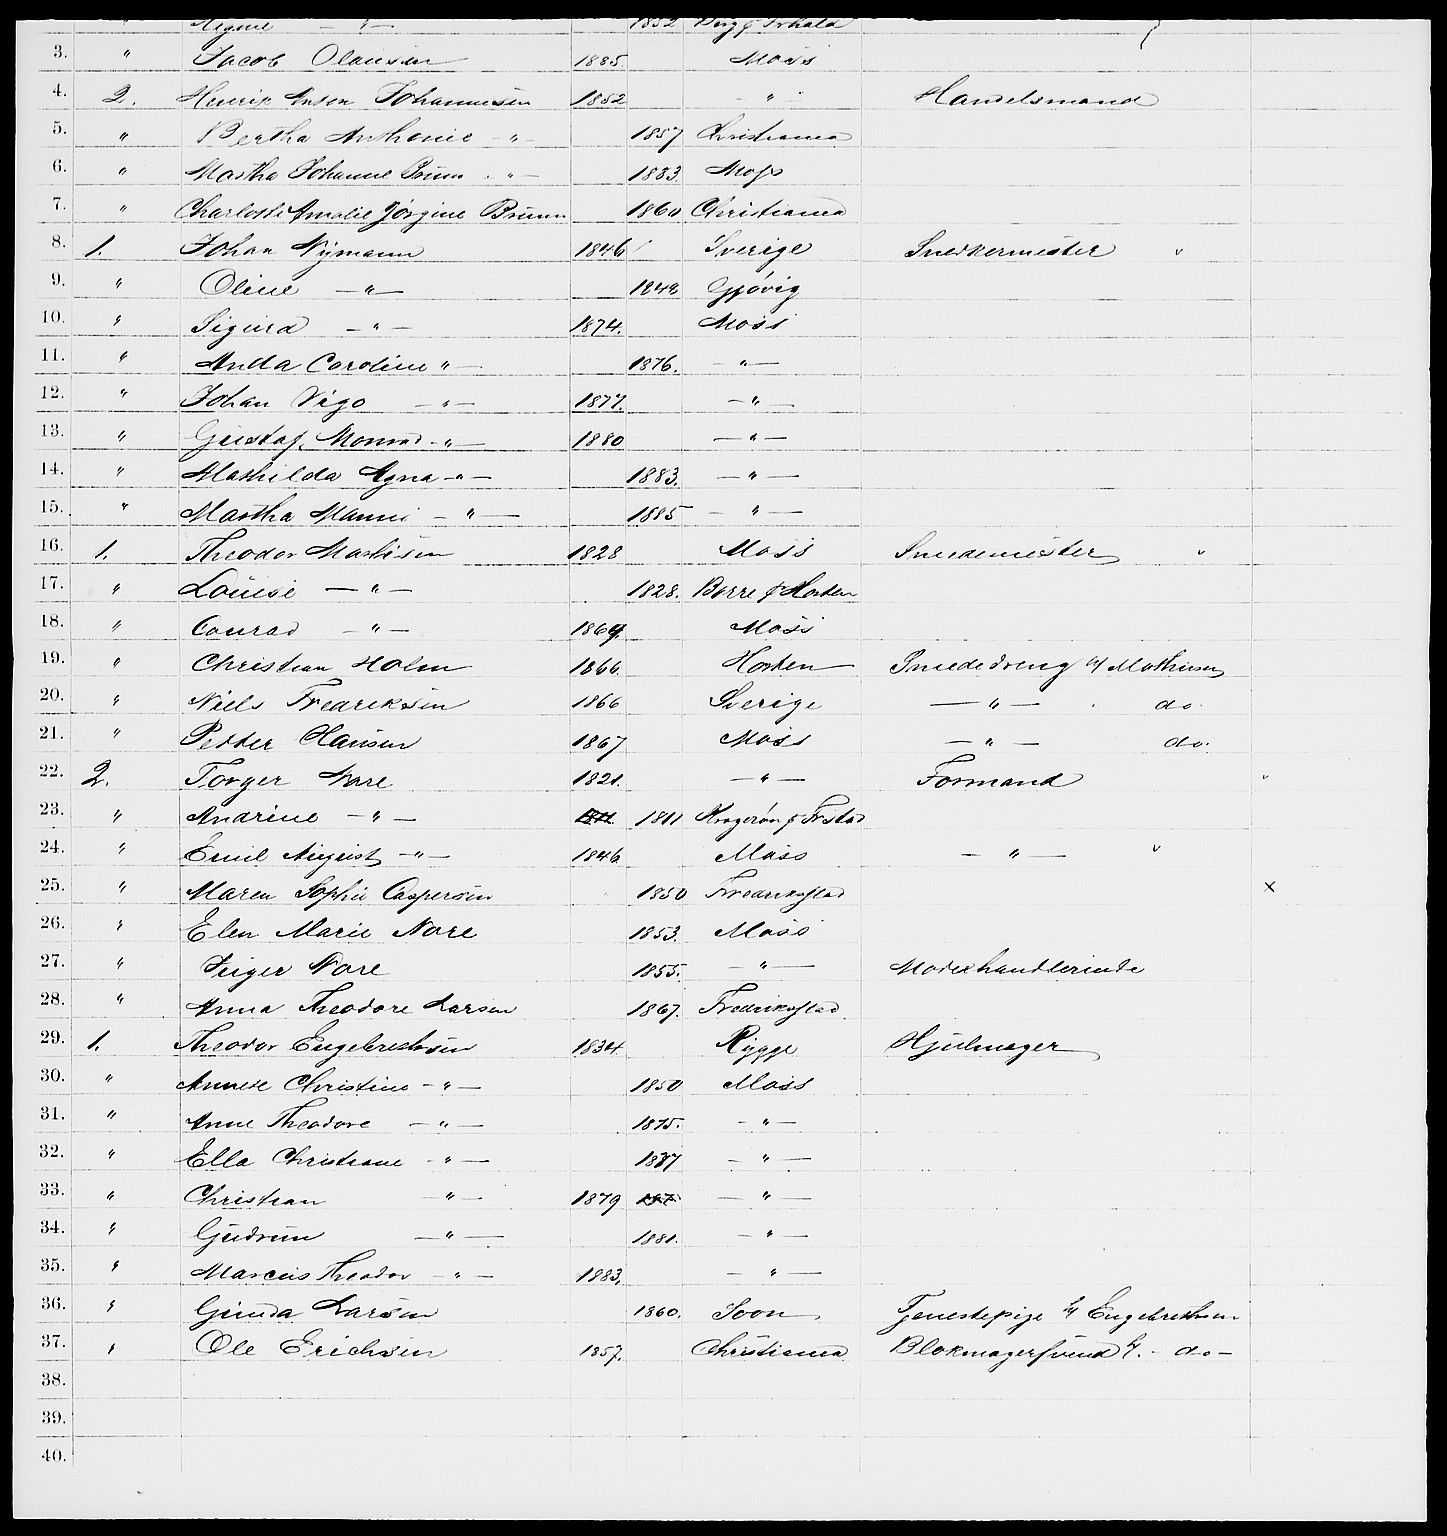 1852 Berg
3. " Jacob Olaussen 1885. Moss
4. 2. Henrik Anton Johannesen 1852 - " - Handelsmand
5. " Bertha Anthonie - " - 1857 Christiania
6. " Martha Johanne - " - 1883. Moss
7. " Charlotte Amalie Jørgine Bruun 1860 Christiania
8. 1. Johan Nymann 1846 Sverige Snedkermester
9. " Oline - " - Gjøvig
10. " Sigurd - " - 1874. Moss
11. " Anda Caroline " - 1876. - " -
12. " Johan Vigo - " - 1877. - " -
13. " Gustaf Monrad - " - 1880 - " -
14. " Mathilda Agna - " - 1883. - " -
15. " Martha - " - 1885 - " -
16. 1. Theodor Mathisen 1828 Moss Smedemester
17. " Louise - " - 1828. Borre p Horten
18. " Conrad - " - Moss
19. " Christian Holm 1866. Horten Smededreng h/ Mathisen
20. " Niels Fredriksen 1866 Sverige - " - do.
21. " Petter Hansen 1867 Moss - " - do.
22. 2. Torger Nore 1821. - " - Formand
23. " Andrine - " - 1811
24. " Emil August - " - 1846 Moss - " -
25. " Maren Sophie Caspersen 1850 Fredrikstad x
26. " Elen Marie Nore 1853. Moss
27. " Nore 1855. - " - Modehandlerinde
28. " Anna Theodore Larsen 1867. Fredrikstad
29. 1. Theodor Engebrethsen 1834. Rygge Hjulmager
30. " Annete Christine - " - 1850 Moss
31. " Anne Theodore - " - 1875. - " -
32. " Ella Christiane - " - 1877 - " -
33. " Christian - " - 1879 - " -
34. " Gudrun - " - 1881. - " -
35. " Marcus Theodor - " - 1883. - " -
36. " Gunda Larsen 1860. Soon Tjenestepige h/ Engebrethsen
37. " Ole Erichsen 1857. Christiania Blokmagersvend h/. - do -
38.
39.
40.